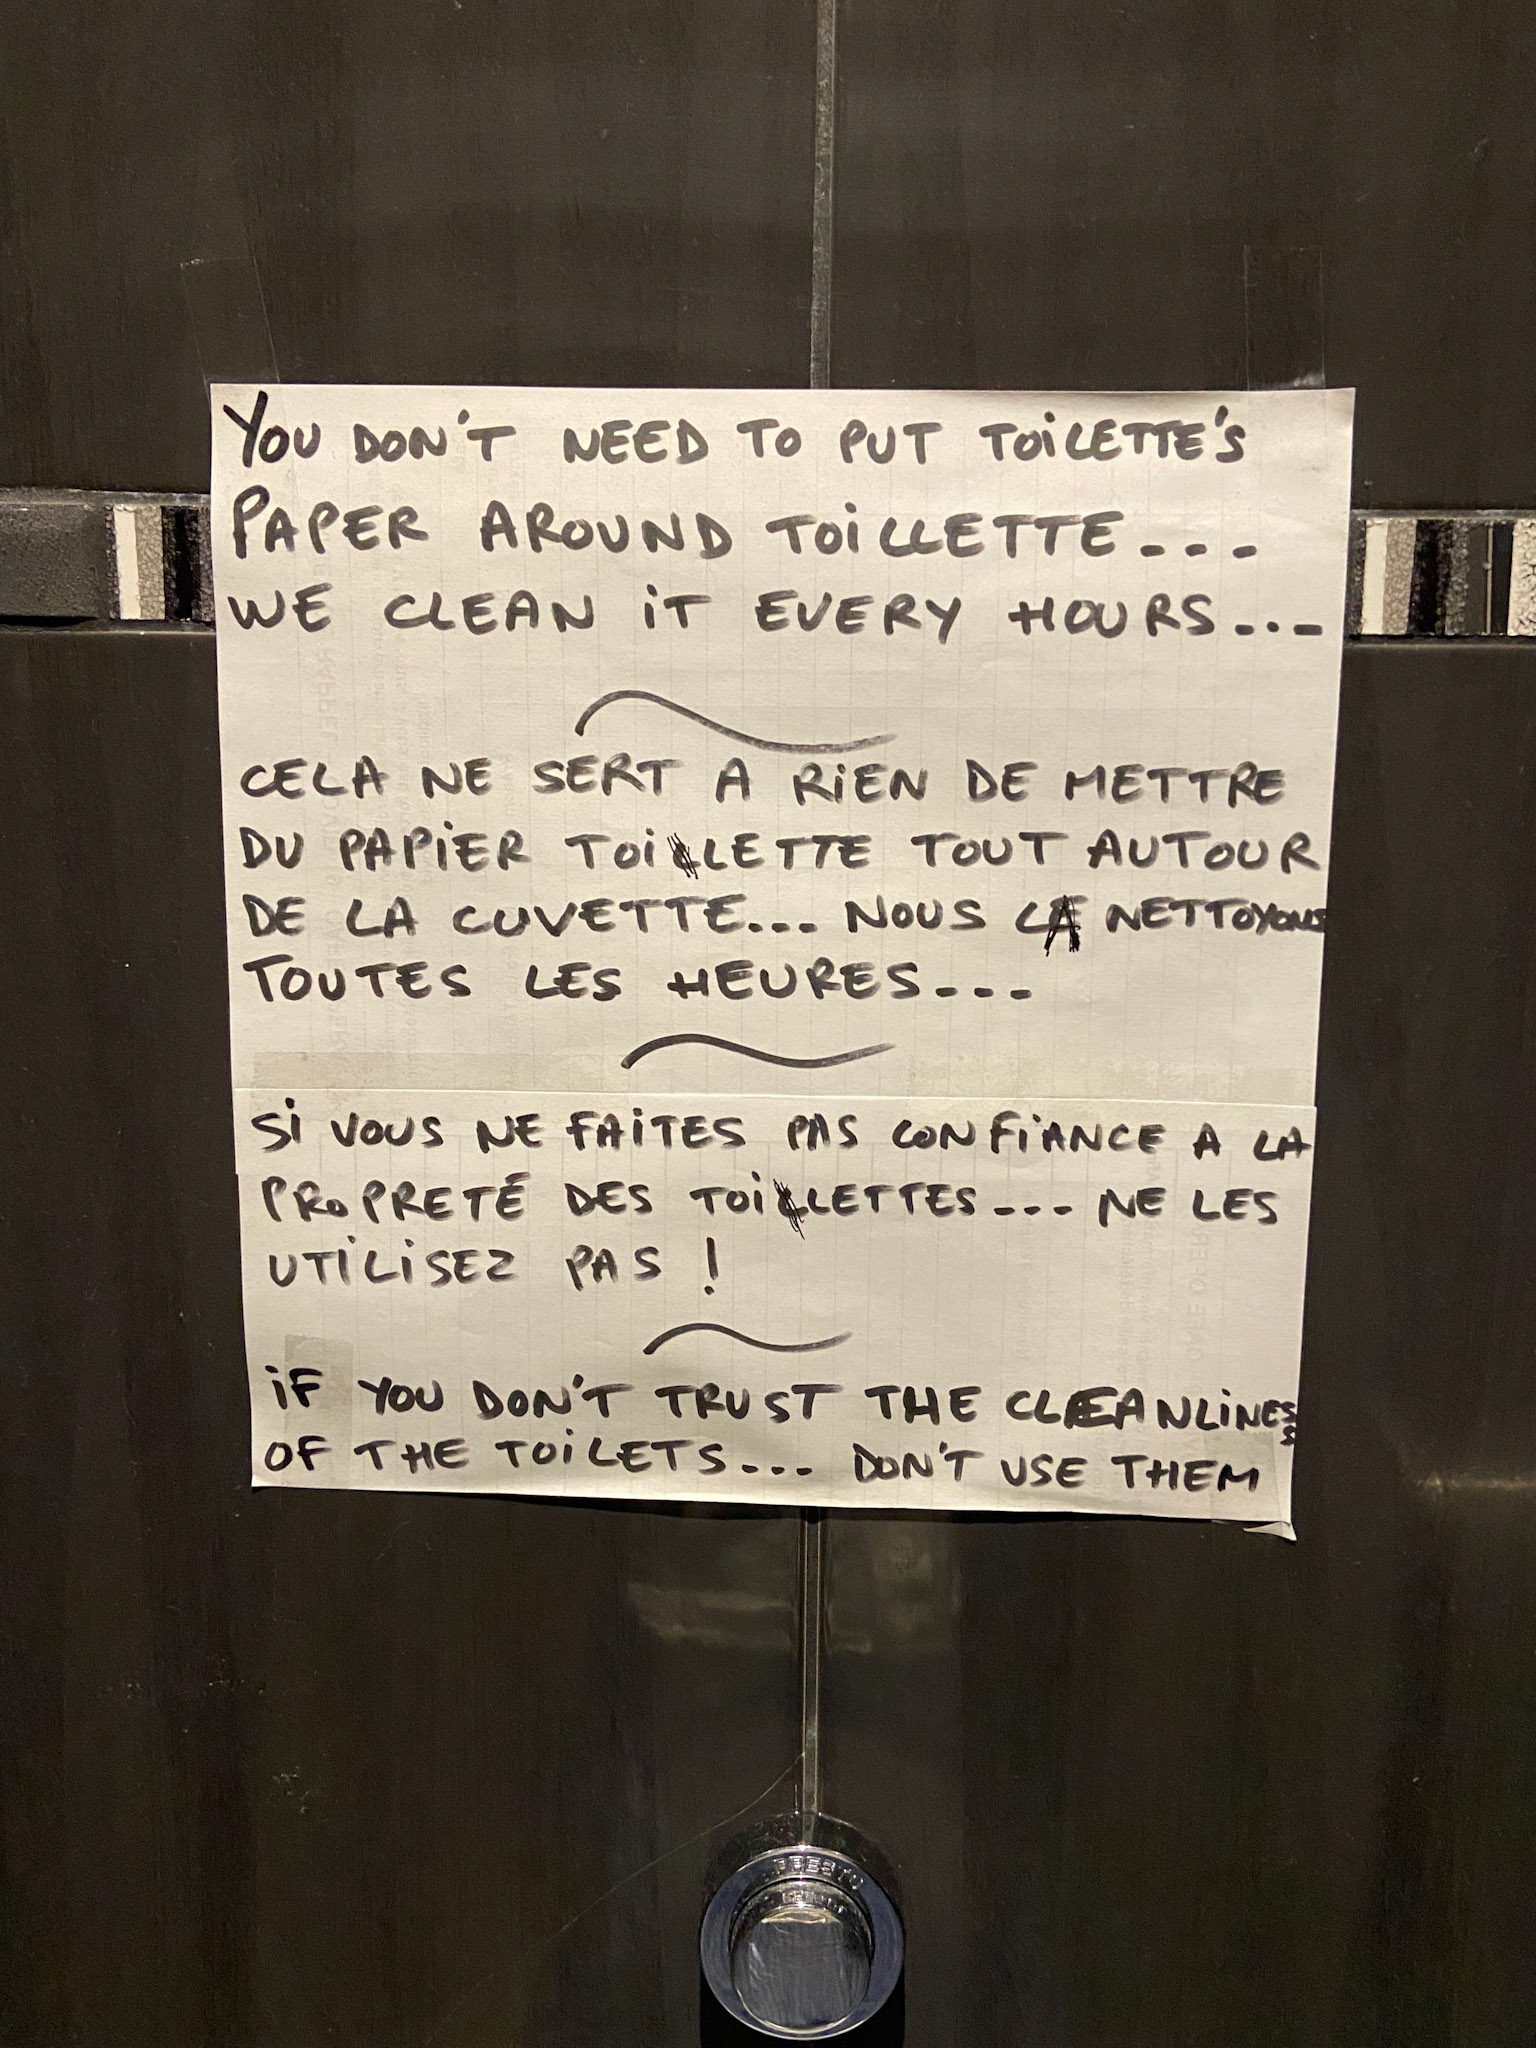 YOU DON'T NEED TO PUT TOiLETTE'S
PAPER AROUND TOiLLETTE...
WE CLEAN iT EVERY HOURS...
CELA NE SERT A RiEN DE METTRE
DU PAPiER TOiLETTE TOUT AUTOUR
DE LA CUVETTE... NOUS LA NETTOYONS
TOUTES LES HEURES...
Si VOUS NE FAiTES PAS CONFiANCE A LA
PROPRETÉ DES TOiLETTES... NE LES
UTiLiSEZ PAS !
iF YOU DON'T TRUST THE CLEANLiNESS
OF THE TOiLETS... DON'T USE THEM
PRESTO